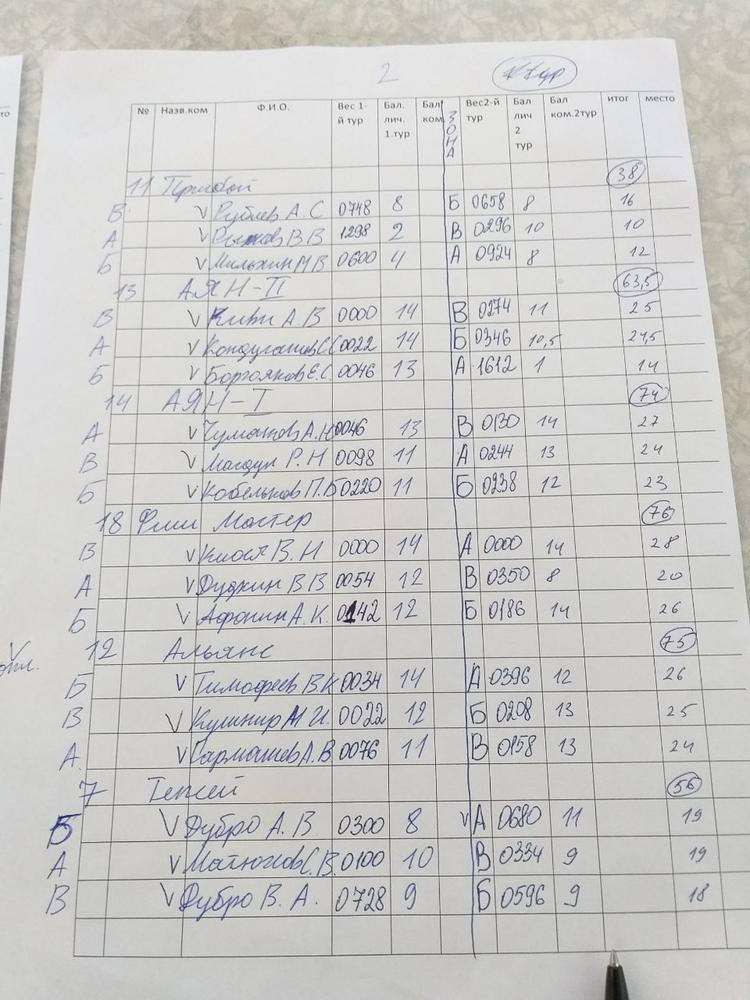 2
№ Назв.ком Ф.И.О. Вес 1-й тур Бал. лич. 1.тур Бал ком. ЗОНА Вес2-й тур Бал лич 2 тур Бал ком.2тур итог место
11 Прибой 38
В. V Рублев А. С 0748 8 Б 0658 8 16
А V Рыжков В В 1298 2 В 0296 10 10
Б V М В 0600 4 А 0924 8 12
13 АЯН-II 63,5
В V А В 0000 14 В 0274 11 25
А V С 0022 14 Б 0346 10,5 24,5
Б V Боргояков Е.С. 0046 13 А 1612 1 14
14 АЯН-I 74
А V Чумаков А.Н 0046 13 В 0130 14 27
В V Р. Н 0098 11 А 0244 13 24
Б V Кобельков П.Б 0220 11 Б 0238 12 23
18 Фиш Мастер 76
В V В. Н 0000 14 А 0000 14 28
А V В В 0054 12 В 0350 8 20
Б V Афонин А. К. 0142 12 Б 0186 14 26
12 Альянс 75
Б V Тимофеев В.К 0034 14 А 0396 12 26
В V Кушнир М И. 0022 12 Б 0208 13 25
А. V Гармашев А. В 0076 11 В 0158 13 24
7 56
Б V Дубро А. В 0300 8 V А 0680 11 19
А V Матюгов С. В. 0100 10 В 0334 9 19
В V Дубро В. А. 0728 9 Б 0596 9 18